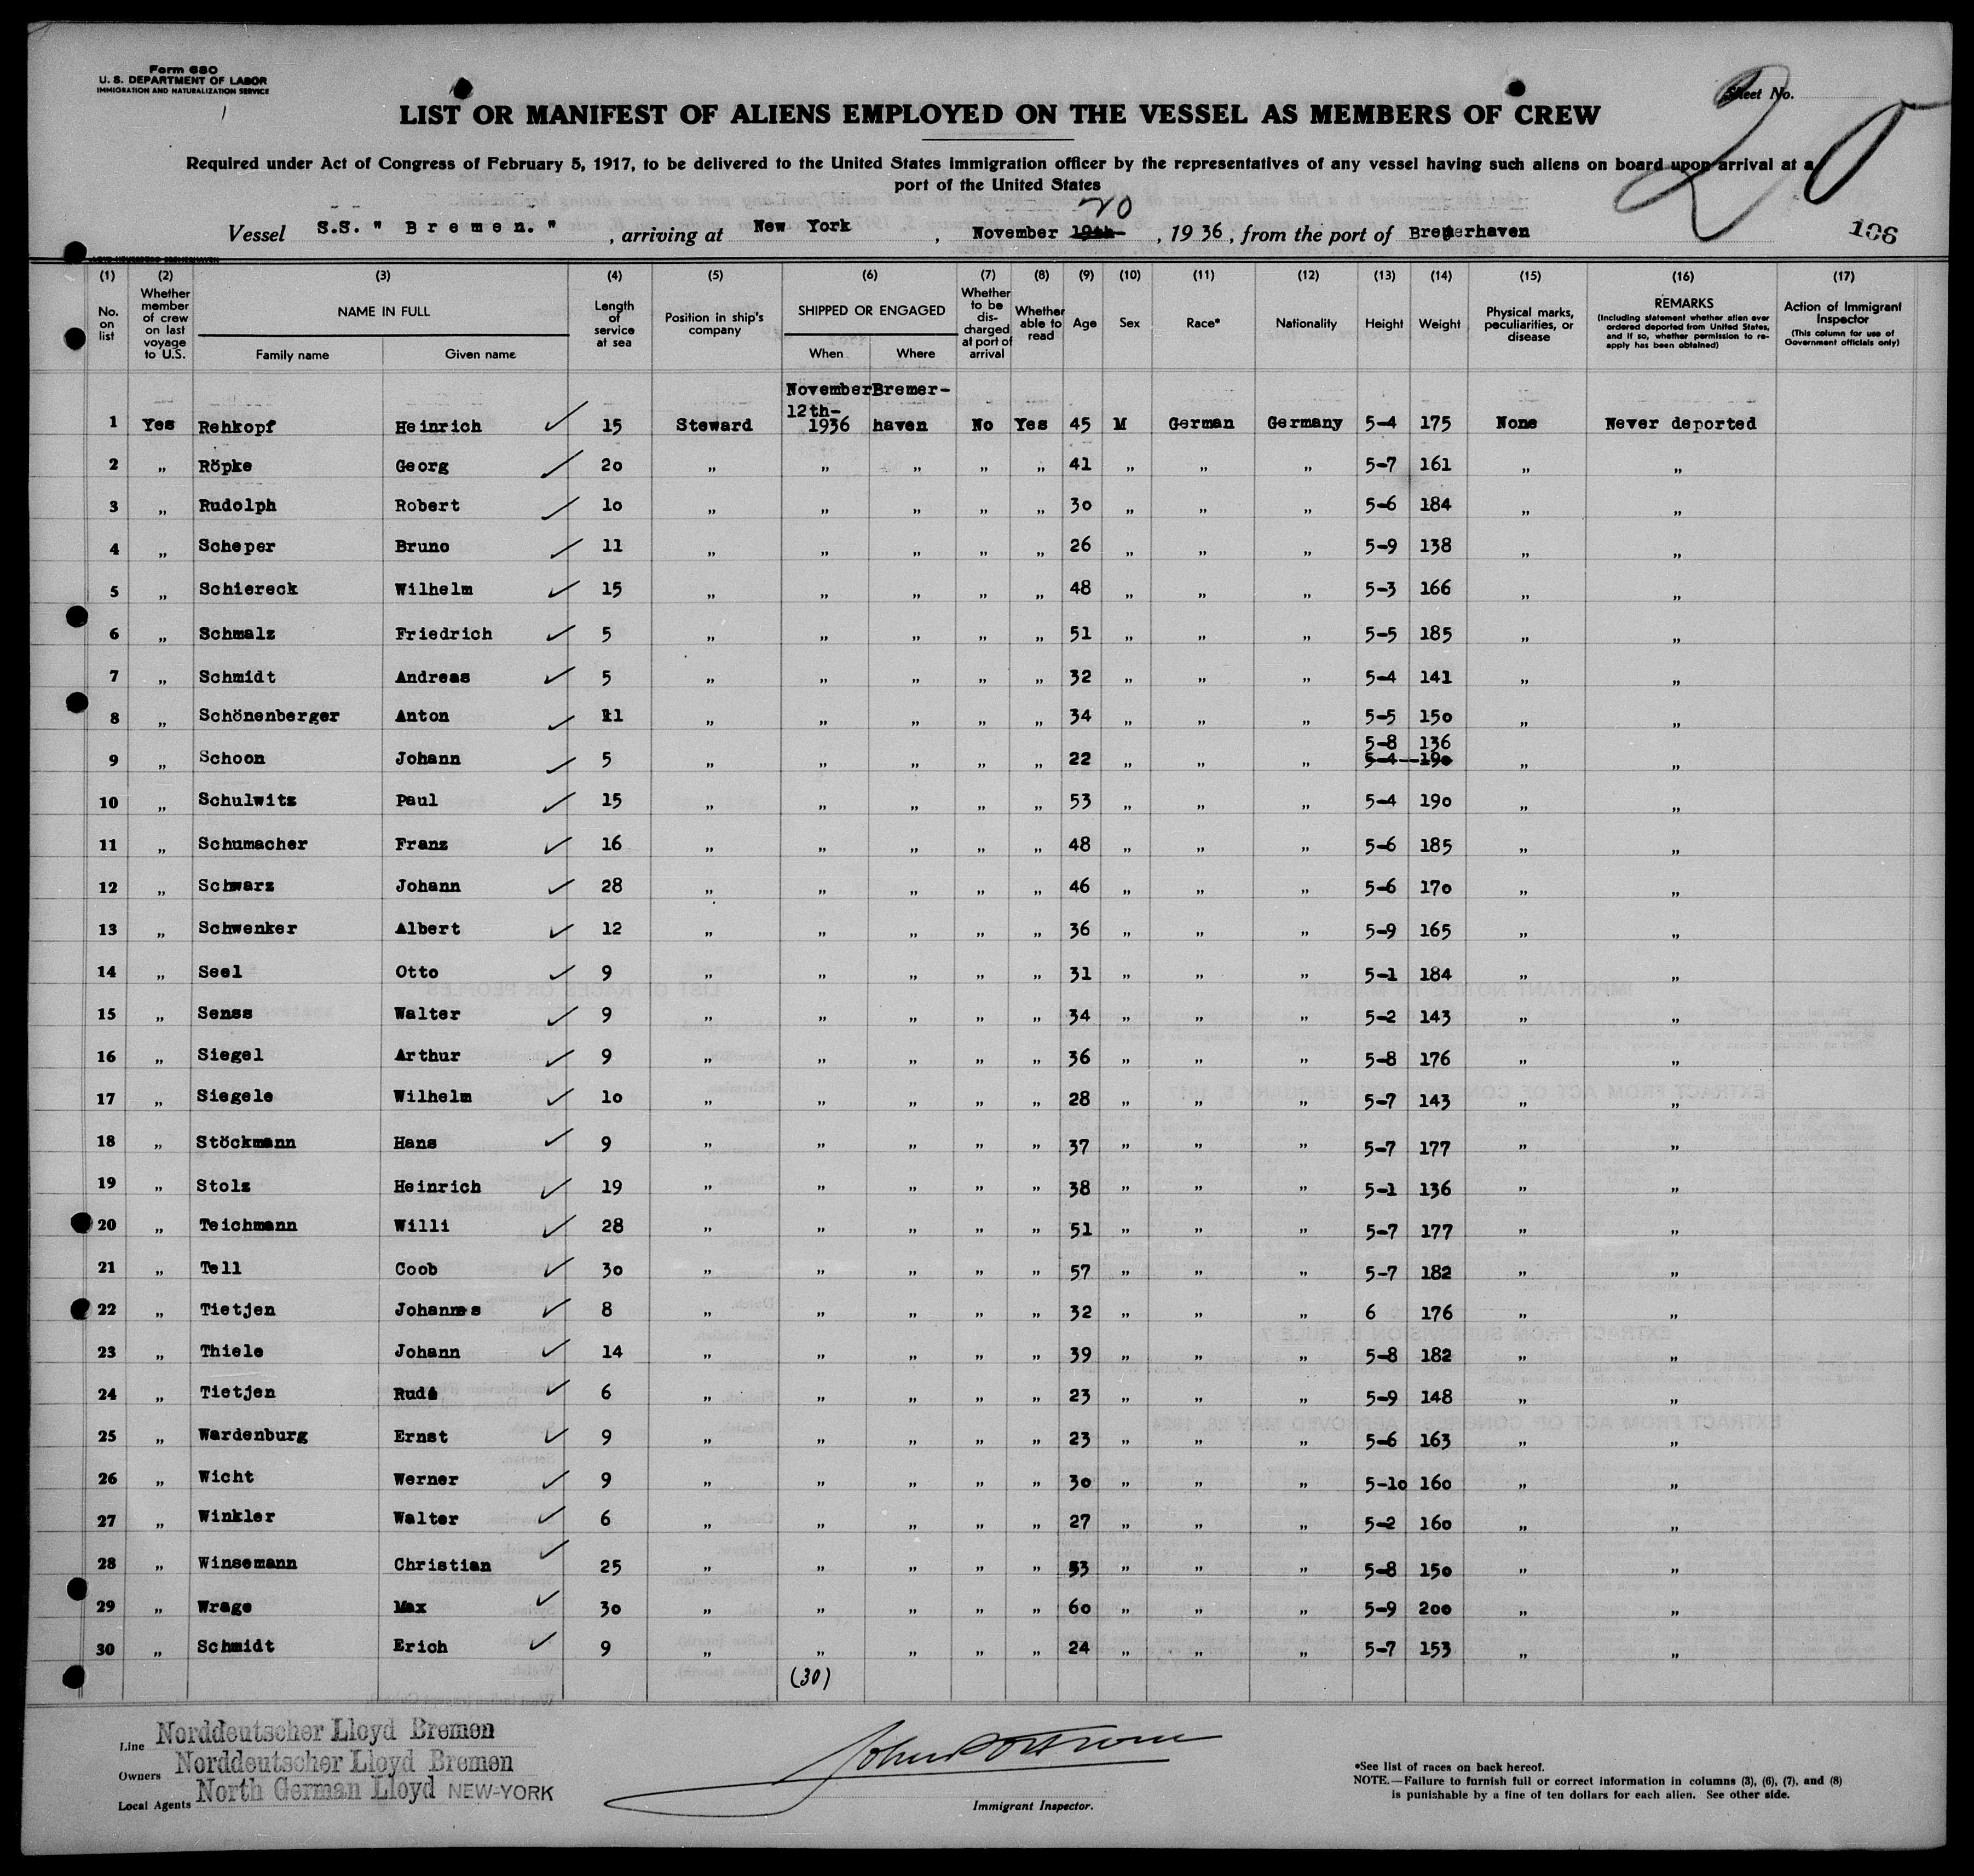 Form 680
U. S. DEPARTMENT OF LABOR
IMMIGRATION AND NATURALIZATION SERVICE
Sheet No.
20
LIST OR MANIFEST OF ALIENS EMPLOYED ON THE VESSEL AS MEMBERS OF CREW
Required under Act of Congress of February 5, 1917, to be delivered to the United States immigration officer by the representatives of any vessel having such aliens on board upon arrival at a
port of the United States
20
Vessel S.S. " Bremen. " , arriving at New York , November 19th- , 1936 , from the port of Bremerhaven
106
(1) (2) (3) (4) (5) (6) (7) (8) (9) (10) (11) (12) (13) (14) (15) (16) (17)
No. on list Whether member of crew on last voyage to U.S. NAME IN FULL Family name Given name Length of service at sea Position in ship's company SHIPPED OR ENGAGED When Where Whether to be discharged at port of arrival Whether able to read Age Sex Race* Nationality Height Weight Physical marks, peculiarities, or disease REMARKS (Including statement whether alien ever ordered deported from United States, and if so, whether permission to re-apply has been obtained) Action of Immigrant Inspector (This column for use of Government officials only)
November Bremer-
12th-
1 Yes Rehkopf Heinrich ✓ 15 Steward 1936 haven No Yes 45 M German Germany 5-4 175 None Never deported
2 " Röpke Georg ✓ 20 " " " " " 41 " " " 5-7 161 " "
3 " Rudolph Robert ✓ 10 " " " " " 30 " " " 5-6 184 " "
4 " Scheper Bruno ✓ 11 " " " " " 26 " " " 5-9 138 " "
5 " Schiereck Wilhelm ✓ 15 " " " " " 48 " " " 5-3 166 " "
6 " Schmalz Friedrich ✓ 5 " " " " " 51 " " " 5-5 185 " "
7 " Schmidt Andreas ✓ 5 " " " " " 32 " " " 5-4 141 " "
8 " Schönenberger Anton ✓ 11 " " " " " 34 " " " 5-5 150 " "
5-8 136
9 " Schoon Johann ✓ 5 " " " " " 22 " " " 5-4 190 " "
10 " Schulwitz Paul ✓ 15 " " " " " 53 " " " 5-4 190 " "
11 " Schumacher Franz ✓ 16 " " " " " 48 " " " 5-6 185 " "
12 " Schwarz Johann ✓ 28 " " " " " 46 " " " 5-6 170 " "
13 " Schwenker Albert ✓ 12 " " " " " 36 " " " 5-9 165 " "
14 " Seel Otto ✓ 9 " " " " " 31 " " " 5-1 184 " "
15 " Senss Walter ✓ 9 " " " " " 34 " " " 5-2 143 " "
16 " Siegel Arthur ✓ 9 " " " " " 36 " " " 5-8 176 " "
17 " Siegele Wilhelm ✓ 10 " " " " " 28 " " " 5-7 143 " "
18 " Stöckmann Hans ✓ 9 " " " " " 37 " " " 5-7 177 " "
19 " Stolz Heinrich ✓ 19 " " " " " 38 " " " 5-1 136 " "
20 " Teichmann Willi ✓ 28 " " " " " 51 " " " 5-7 177 " "
21 " Tell Coob ✓ 30 " " " " " 57 " " " 5-7 182 " "
22 " Tietjen Johannes ✓ 8 " " " " " 32 " " " 6 176 " "
23 " Thiele Johann ✓ 14 " " " " " 39 " " " 5-8 182 " "
24 " Tietjen Rudi ✓ 6 " " " " " 23 " " " 5-9 148 " "
25 " Wardenburg Ernst ✓ 9 " " " " " 23 " " " 5-6 163 " "
26 " Wicht Werner ✓ 9 " " " " " 30 " " " 5-10 160 " "
27 " Winkler Walter ✓ 6 " " " " " 27 " " " 5-2 160 " "
28 " Winsemann Christian ✓ 25 " " " " " 53 " " " 5-8 150 " "
29 " Wrage Max ✓ 30 " " " " " 60 " " " 5-9 200 " "
30 " Schmidt Erich ✓ 9 " " " " " 24 " " " 5-7 153 " "
(30)
Line Norddeutscher Lloyd Bremen
Owners Norddeutscher Lloyd Bremen
Local Agents North German Lloyd NEW-YORK
Immigrant Inspector.
*See list of races on back hereof.
NOTE.—Failure to furnish full or correct information in columns (3), (6), (7), and (8)
is punishable by a fine of ten dollars for each alien. See other side.